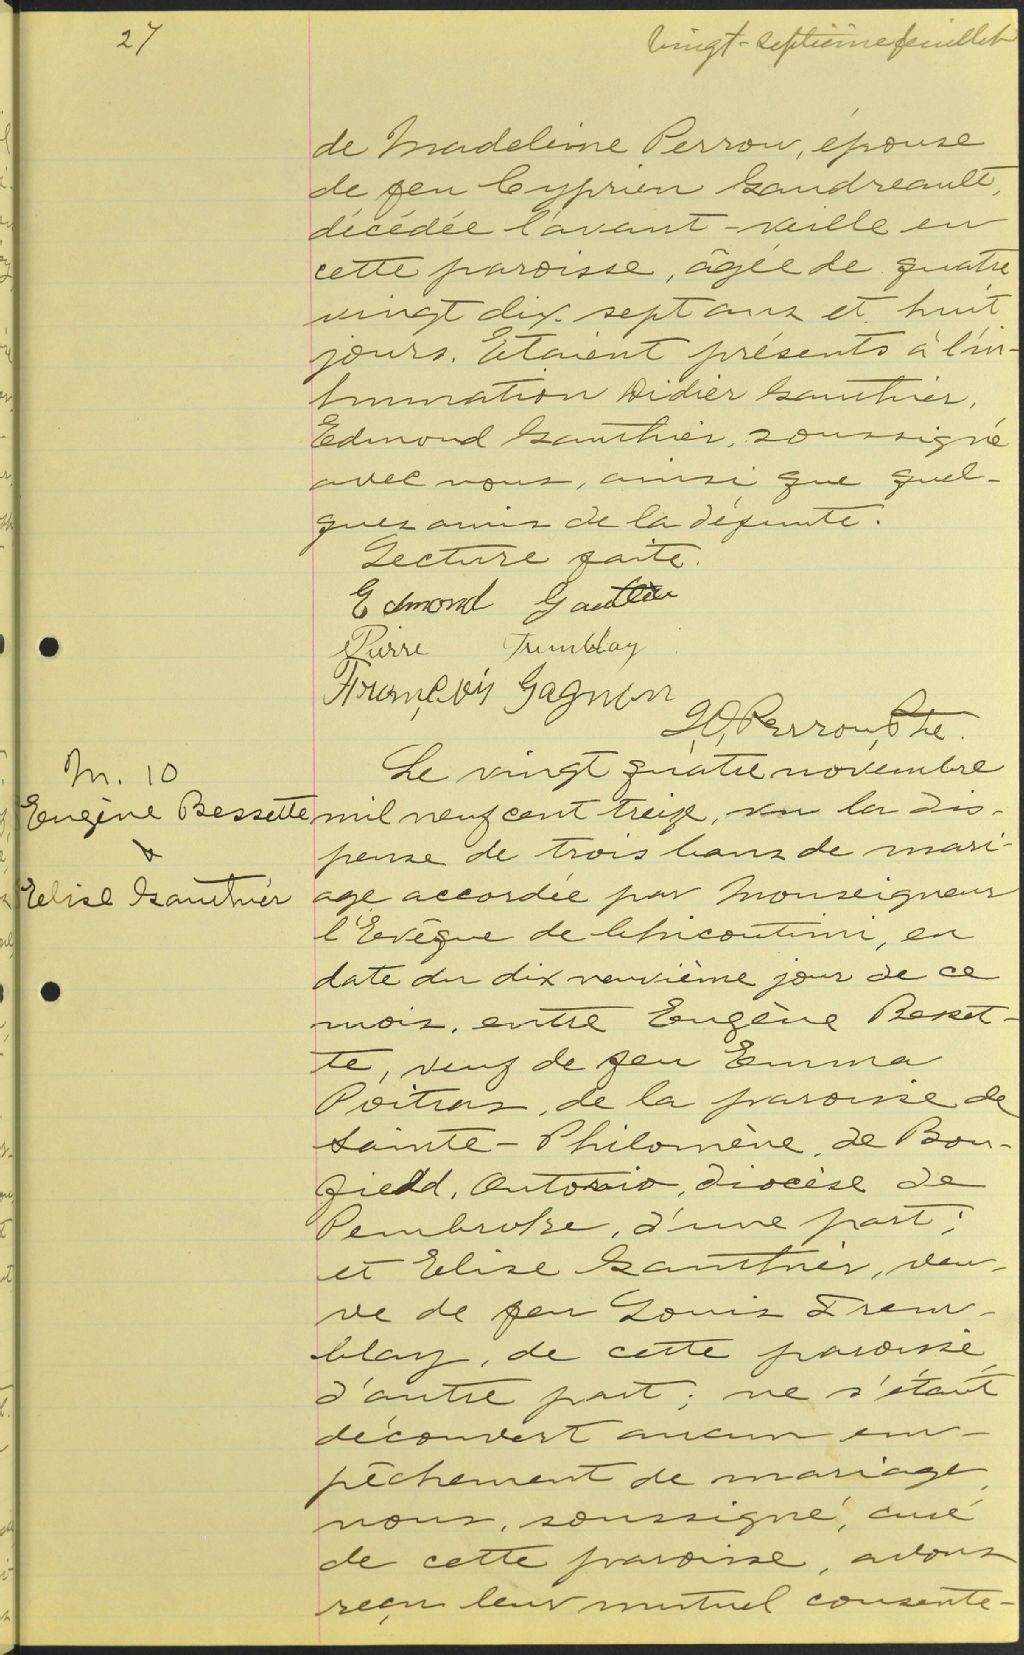 27
vingt-septième feuillet
de Madeleine Perron, épouse
de feu Cyprien Gaudreault,
décédée l'avant-veille en
cette paroisse, âgée de quatre
vingt dix-sept ans et huit
jours. Etaient présents à l'in-
humation Didier Gauthier,
Edmond Gauthier, soussigné
avec nous, ainsi que quel-
ques amis de la défunte.
Lecture faite.
Edmond Gauthier
Pierre Tremblay
François Gagnon
J.O. Perron, Ptre.
M. 10
Eugène Bessette
&
Elise Gauthier
Le vingt quatre novembre
mil neuf cent treize, vu la dis-
pense de trois bans de mari-
age accordée par Monseigneur
l'Evêque de Chicoutimi, en
date du dix neuvième jour de ce
mois, entre Eugène Besset-
te, veuf de feu Emma
Poitras, de la paroisse de
Sainte-Philomène, de Bon-
field, Ontario, diocèse de
Pembroke, d'une part;
et Elise Gauthier, veu-
ve de feu Louis Trem-
blay, de cette paroisse,
d'autre part; ne s'étant
découvert aucun em-
pêchement de mariage,
nous, soussigné, curé
de cette paroisse, avons
reçu leur mutuel consente-